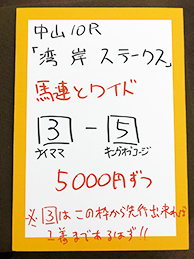 中山10R
「湾岸ステークス」
馬連とワイド
3 - 5
ナイママ キングオブコージ
5000円ずつ
※3はこの枠から先行出来れば
1着まであるはず!!